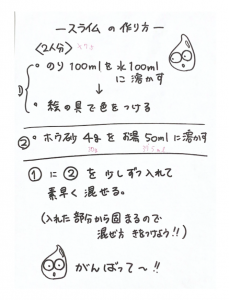 ースライム の 作り方ー
〈2人分〉
①
・のり 100mlを水100ml
に 溶かす
・絵の具で色をつける
②・ホウ砂 4gを お湯 50mlに溶かす
①に②を少しずつ入れて
素早く混ぜる。
(入れた部分から固まるので
混ぜ方 きをつけよう!!)
がんばって〜!!